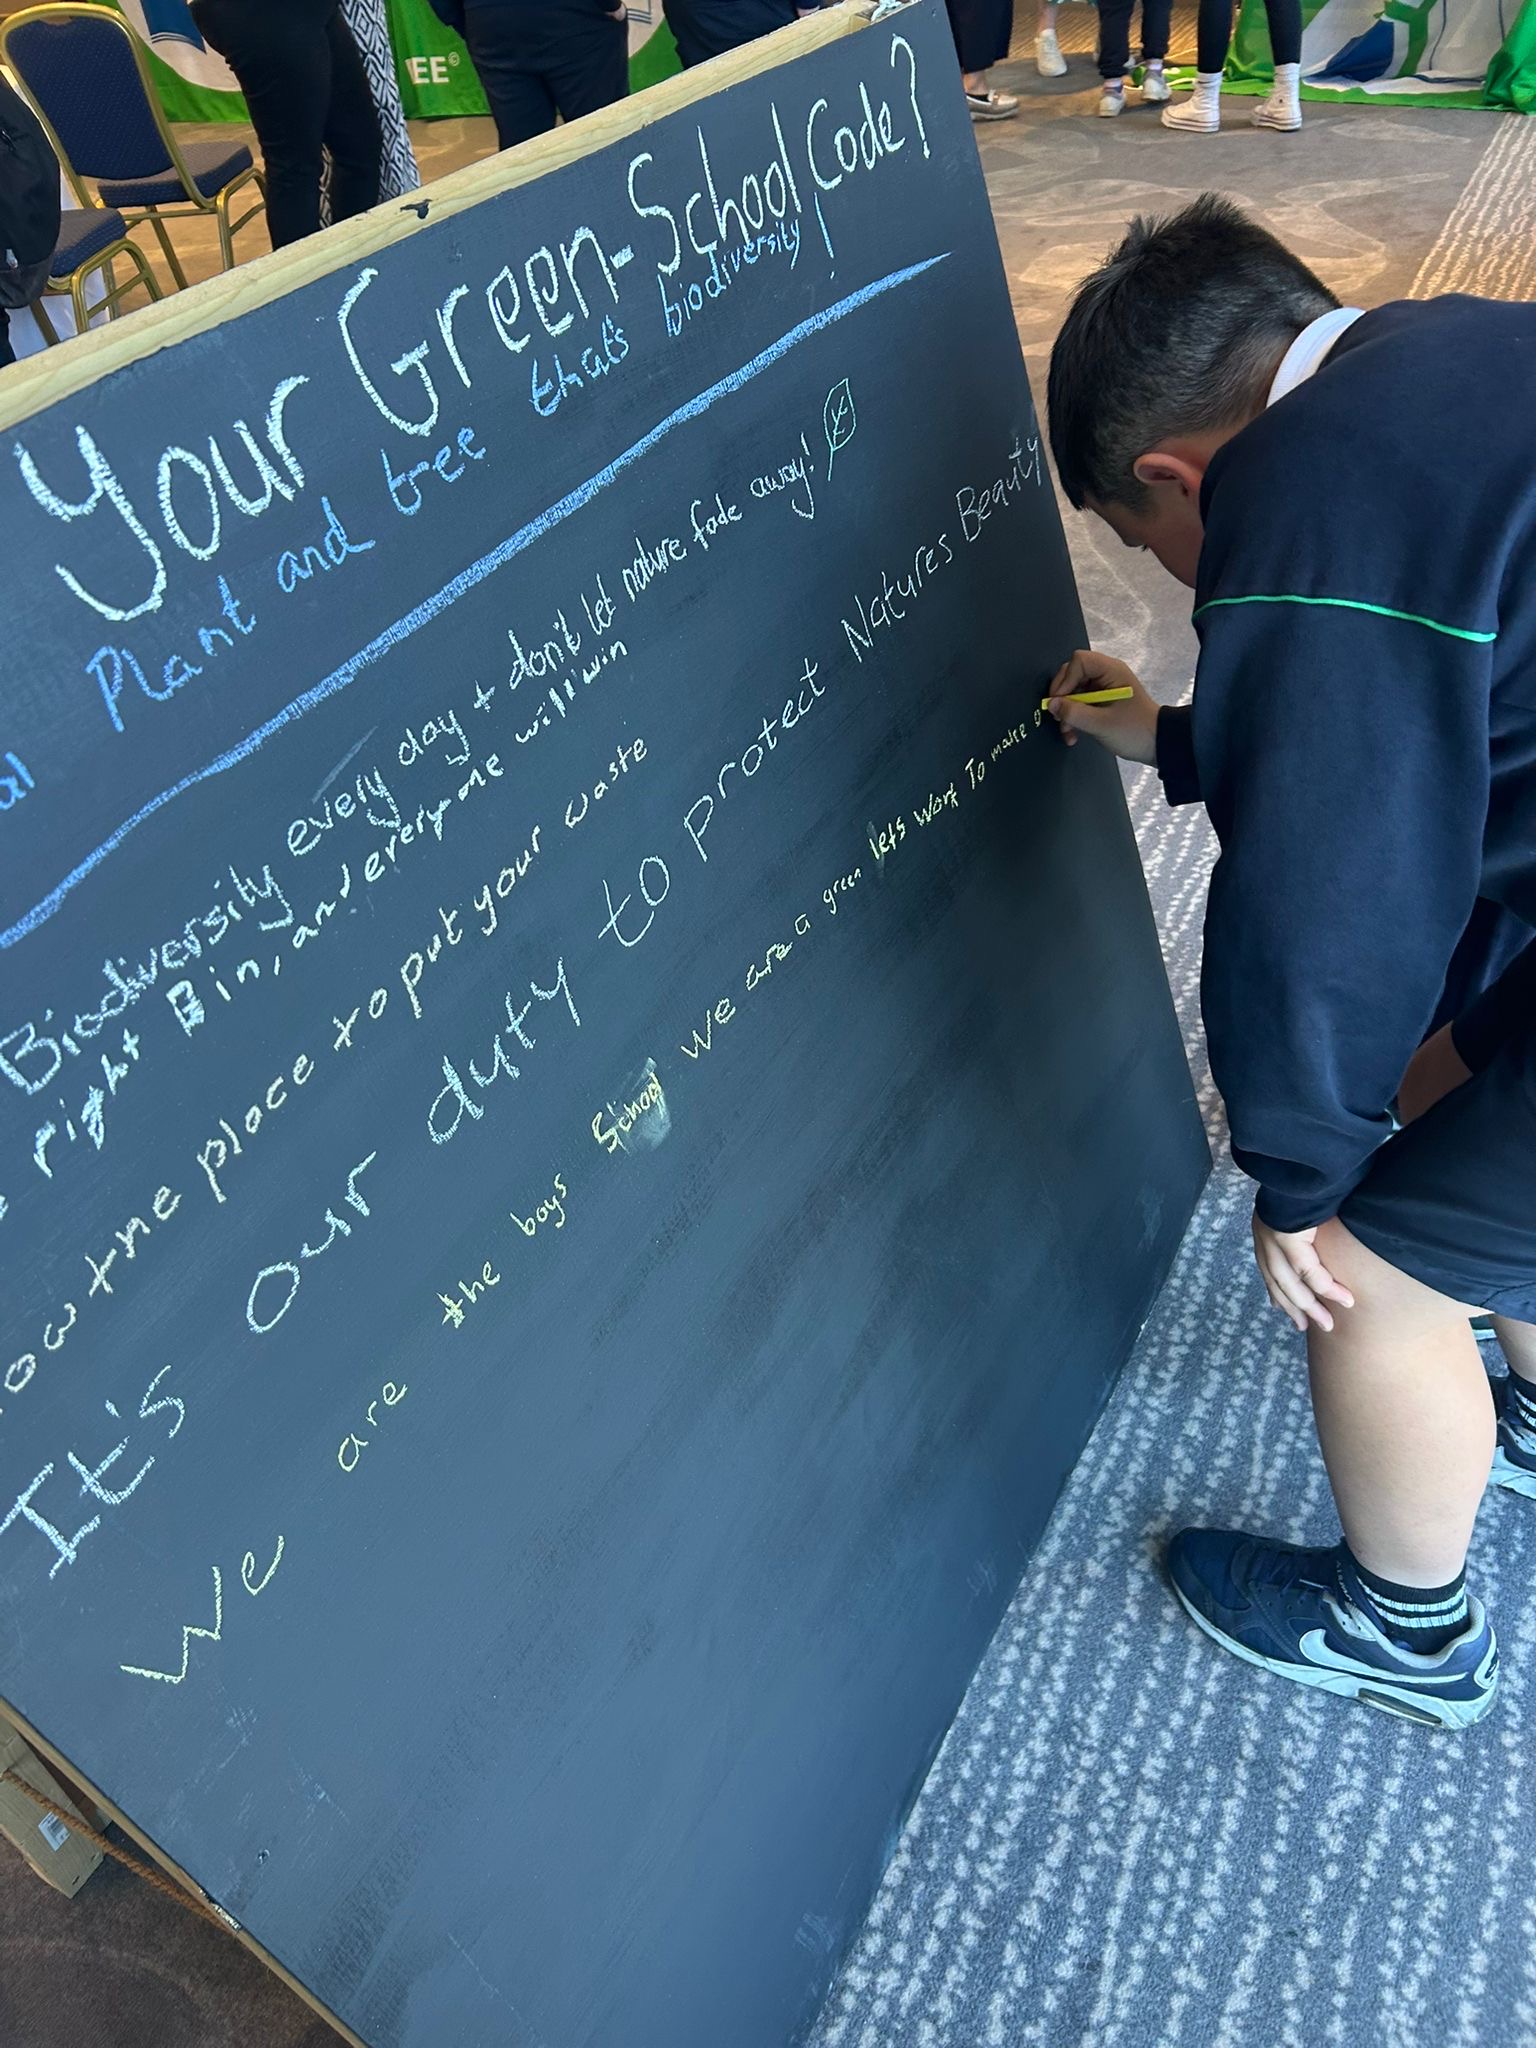 EE©
Your Green-School Code?
Plant and tree that's biodiversity!
Biodiversity every day + don't let nature fade away!
right Bin, and everyone will win
the place to put your waste
It's our duty to protect Natures Beauty
We are the boys School we are a green lets work To make